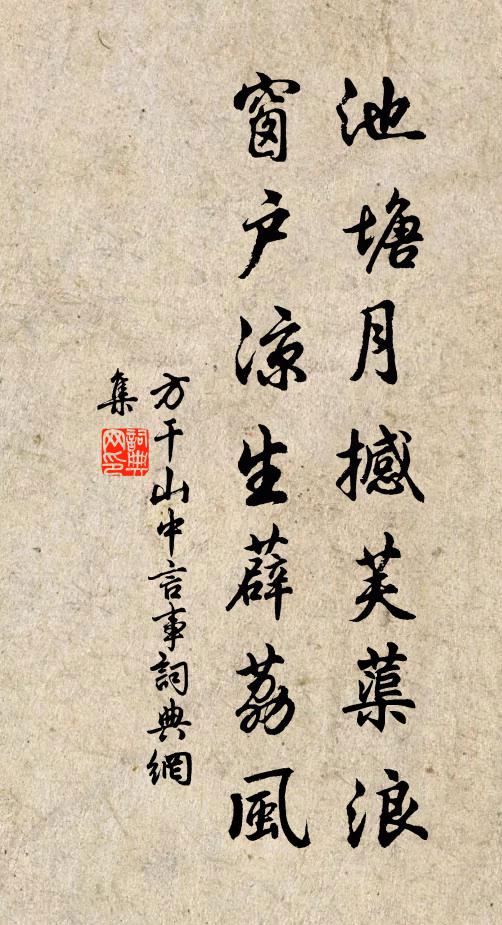 池塘月撼芙蕖浪
窗户凉生薜荔風
方干山中言事詞典網
集
詞典網印